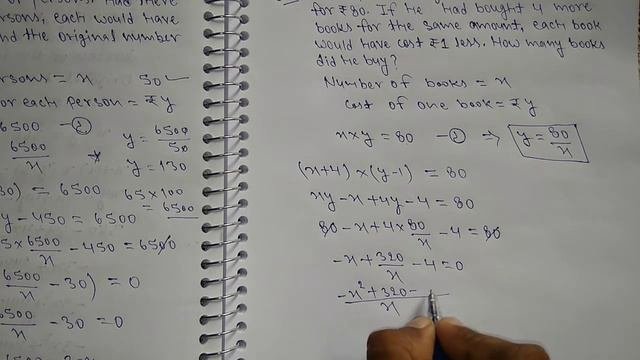 persons, had there
rsons, each would have
nd the original number
rsons = x 50
or each person = ₹y
6500 — ②
6500/x
y = 6500/50
y = 130
30) = 6500
65×100
= 6500
y - 450 = 6500
5× 6500/x - 450 = 6500
6500/x - 30) = 0
6500/x - 30 = 0
for ₹80. If he had bought 4 more
books for the same amount, each book
would have cost ₹1 less. How many books
did he buy?
Number of books = x
Cost of one book = ₹y
x×y = 80 — ① ⇒ y = 80/x
(x+4)×(y-1) = 80
xy - x + 4y - 4 = 80
80 - x + 4× 80/x - 4 = 80
-x + 320/x - 4 = 0
-x² + 320 -
x